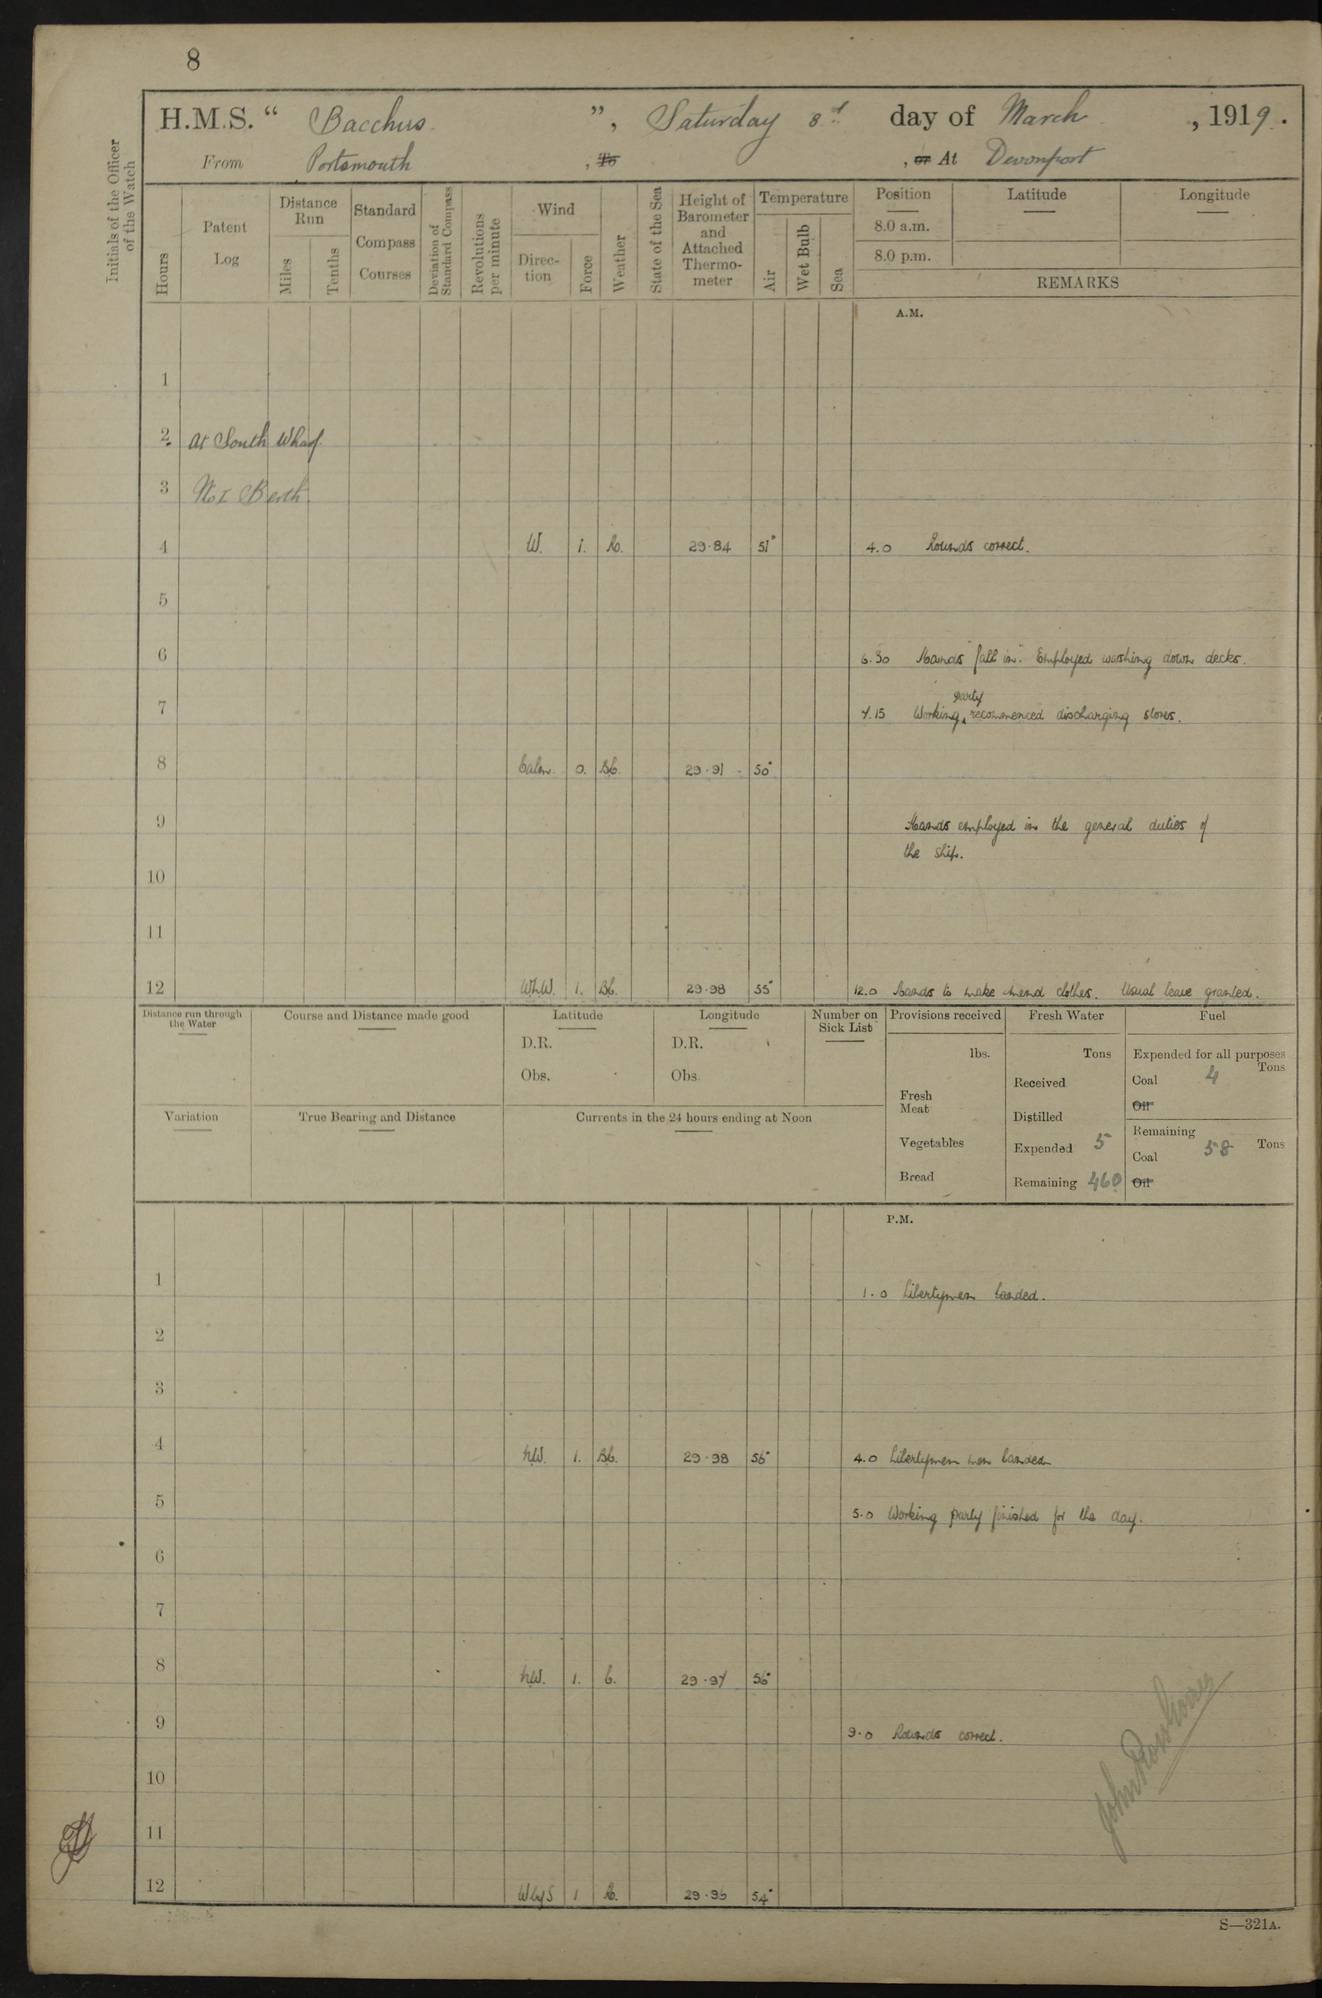 8
H.M.S. “ Bacchus ”, Saturday 8th day of March , 1919.
From Portsmouth , To , or At Devonport
Initials of the Officer of the Watch
Hours
Patent Log
Distance Run
Miles
Tenths
Standard Compass Courses
Deviation of Standard Compass
Revolutions per minute
Wind
Direction
Force
Weather
State of the Sea
Height of Barometer and Attached Thermometer
Temperature
Air
Wet Bulb
Sea
Position Latitude Longitude
8.0 a.m.
8.0 p.m.
REMARKS
A.M.
1
2 At South Wharf.
3 No 1 Berth.
4 W. 1. 29.84 51° 4.0 Rounds correct.
5
6 6.30 Hands fall in. Employed washing down decks.
7 7.15 Working party recommenced discharging stores.
8 Calm. 0. Bc. 29.91 50°
9 Hands employed in the general duties of
the ship.
10
11
12 1. Bc. 29.98 55° 12.0 Hands to make mend clothes. Usual leave granted.
Distance run through the Water
Course and Distance made good
Latitude
D.R.
Obs.
Longitude
D.R.
Obs.
Number on Sick List
Provisions received
lbs.
Fresh Meat
Vegetables
Bread
Fresh Water
Tons
Received
Distilled
Expended 5
Remaining 460
Fuel
Expended for all purposes
Tons
Coal 4
Oil
Remaining
Coal 58 Tons
Oil
Variation
True Bearing and Distance
Currents in the 24 hours ending at Noon
P.M.
1 1.0 Libertymen landed.
2
3
4 NW. 1. Bc. 29.98 56° 4.0 Libertymen landed
5 5.0 Working party finished for the day.
6
7
8 NW. 1. C. 29.97 56°
9 9.0 Rounds correct.
10
11
12 WbyS 1 29.96 54°
S—321A.